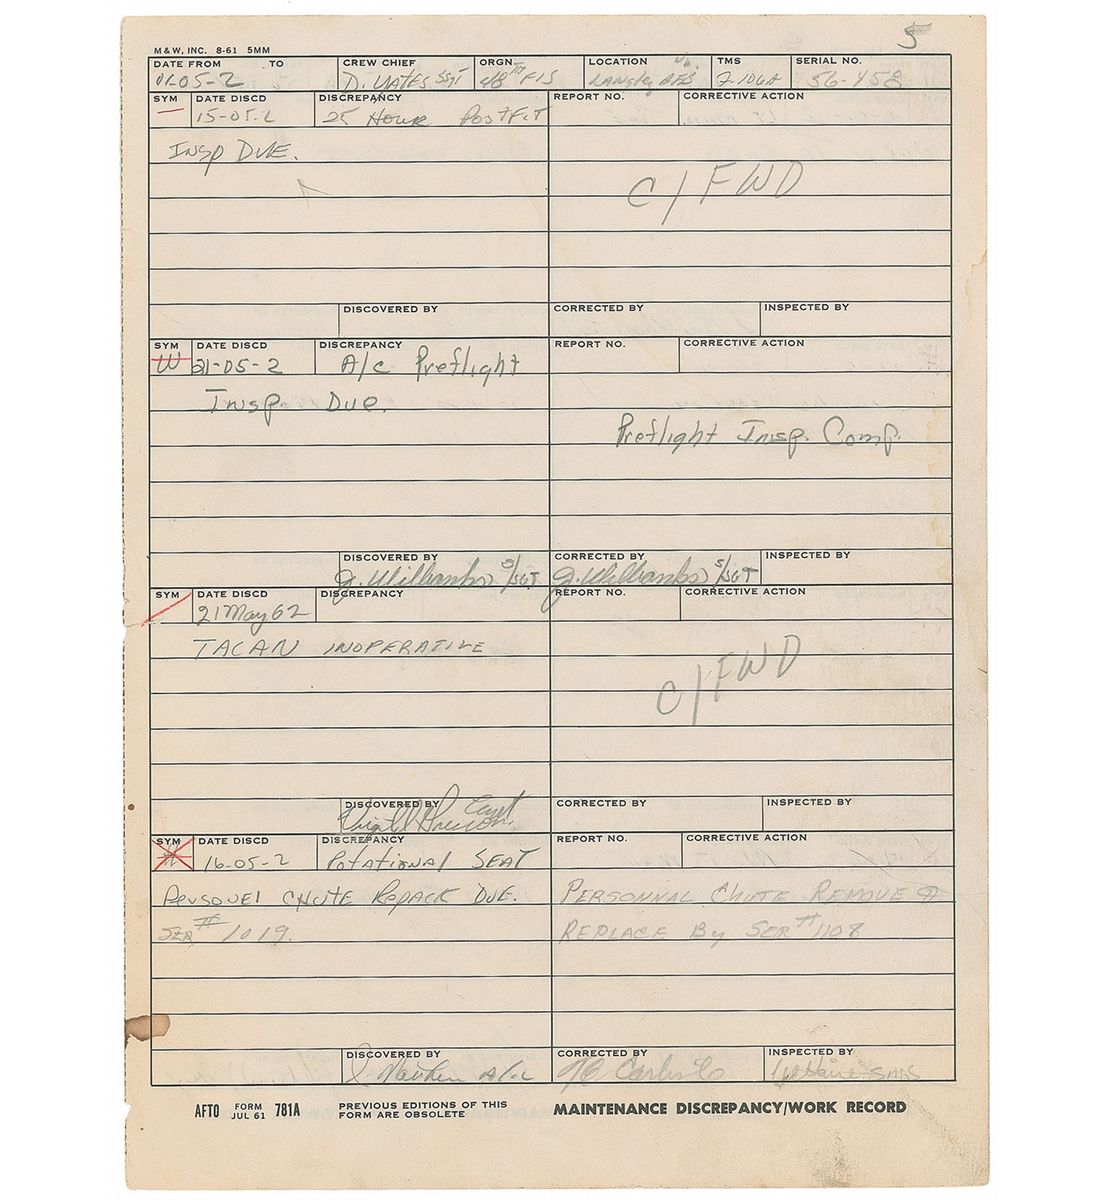 5
M & W, INC. 8-61 5MM
DATE FROM TO CREW CHIEF ORGN. LOCATION TMS SERIAL NO.
01-05-2 D. YATES SSGT 48TH FIS LANGLEY AFB F-106A 56-458
SYM DATE DISCD DISCREPANCY REPORT NO. CORRECTIVE ACTION
— 15-05-2 25 HOUR POSTFLT
INSP DUE.
C/FWD
DISCOVERED BY CORRECTED BY INSPECTED BY
SYM DATE DISCD DISCREPANCY REPORT NO. CORRECTIVE ACTION
W 21-05-2 A/C Preflight
Insp. Due.
Preflight Insp. Comp.
DISCOVERED BY CORRECTED BY INSPECTED BY
J. Willbanks S/SGT J. Willbanks S/SGT
SYM DATE DISCD DISCREPANCY REPORT NO. CORRECTIVE ACTION
/ 21 May 62
TACAN INOPERATIVE
C/FWD
DISCOVERED BY CORRECTED BY INSPECTED BY
Capt
SYM DATE DISCD DISCREPANCY REPORT NO. CORRECTIVE ACTION
16-05-2 ROTATIONAL SEAT
PERSONEL CHUTE REPACK DUE. PERSONNAL CHUTE REMOVE &
SER # 1019. REPLACE BY SER # 1108
DISCOVERED BY CORRECTED BY INSPECTED BY
AFTO FORM JUL 61 781A PREVIOUS EDITIONS OF THIS FORM ARE OBSOLETE MAINTENANCE DISCREPANCY/WORK RECORD